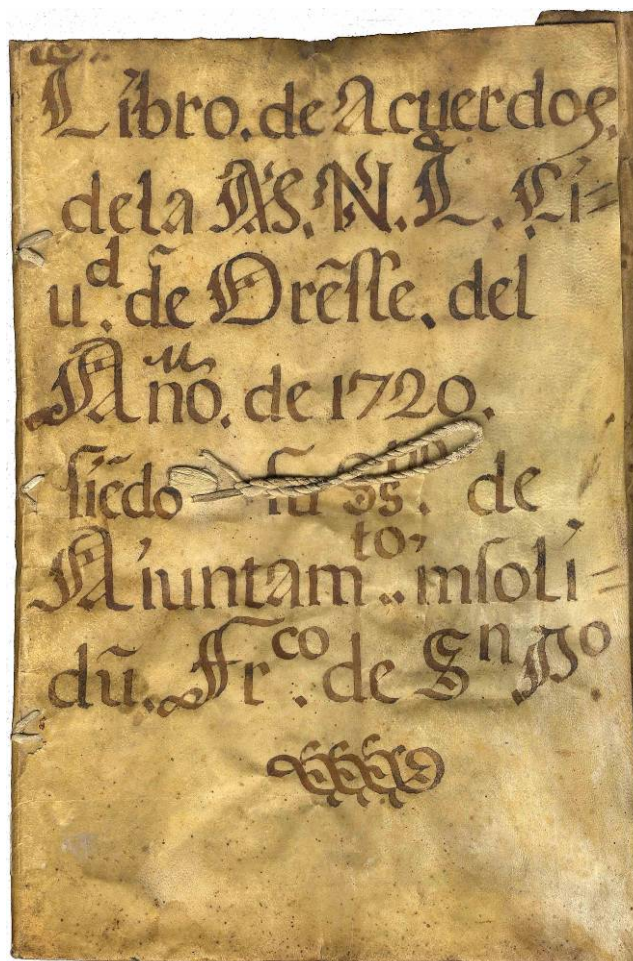 Libro. de Acuerdos.
dela M. N. L. Ci=
u.d de Orẽsse. del
Año. de 1720.
siẽdo su Ss.no de
Aiuntam.to insoli=
dũ. Fr.co de Sn P.o